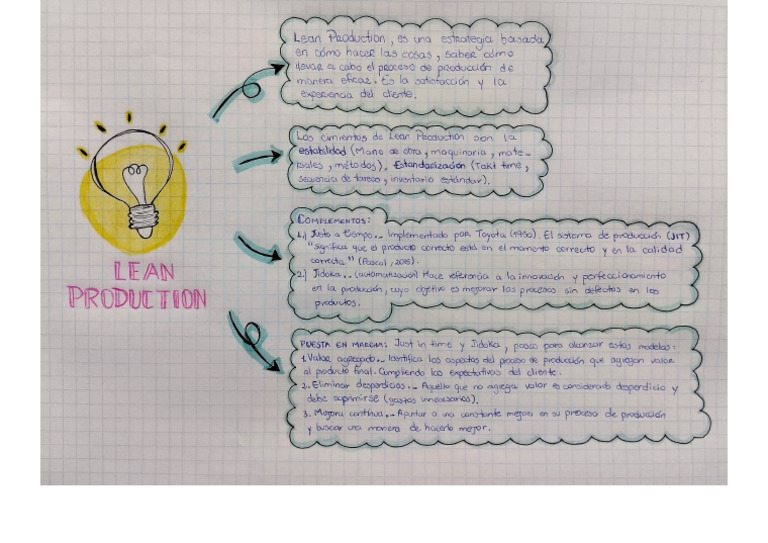 Lean Production, es una estrategia basada
en cómo hacer las cosas, saber cómo
llevar a cabo el proceso de producción de
manera eficaz. Es la satisfacción y la
experiencia del cliente.
Los cimientos de Lean Production son la
estabilidad (Mano de obra, maquinaria, mate-
riales, métodos), Estandarización (Takt time,
secuencia de tareas, inventario estándar).
COMPLEMENTOS:
1.) Justo a tiempo.- Implementado por Toyota (1950). El sistema de producción (JIT)
"significa que el producto correcto está en el momento correcto y en la calidad
correcta" (Pascal, 2015).
2.) Jidoka.- (automatización) Hace referencia a la innovación y perfeccionamiento
en la producción, cuyo objetivo es mejorar los procesos sin defectos en los
productos.
LEAN
PRODUCTION
PUESTA EN MARCHA: Just in time y Jidoka, pasos para alcanzar estos modelos:
1. Valor agregado.- Identifica los aspectos del proceso de producción que agregan valor
al poducto final. Cumpliendo las expectativas del cliente.
2. Eliminar desperdicios.- Aquello que no agrega valor es considerado desperdicio y
debe suprimirse (gastos innecesarios).
3. Mejora continua.- Apuntar a una constante mejora en su proceso de producción
y buscar una manera de hacerlo mejor.